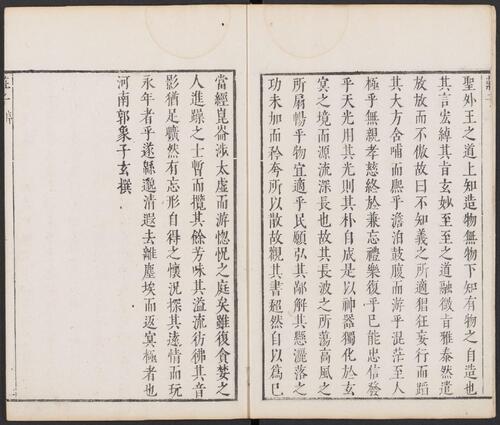 聖外王之道上知造物無物下知有物之自造也
其言宏綽其旨玄妙至至之道融微旨雅泰然遣
放放而不傲故曰不知義之所適猖狂妄行而蹈
其大方含哺而熙乎澹泊鼓腹而游乎混茫至人
極乎無親孝慈終於兼忘禮樂復乎已能忠信發
乎天光用其光則其朴自成是以神器獨化於玄
冥之境而源流深長也故其長波之所蕩高風之
所扇暢乎物宜適乎民願弘其鄙解其懸灑落之
功未加而矜夸所以散故觀其書超然自以為已
當經崑崙涉太虛而游惚怳之庭矣雖復貪婪之
人進躁之士暫而攬其餘芳味其溢流彷彿其音
影猶足曠然有忘形自得之懷況探其遠情而玩
永年者乎遂綿邈清遐去離塵埃而返冥極者也
河南郭象子玄撰